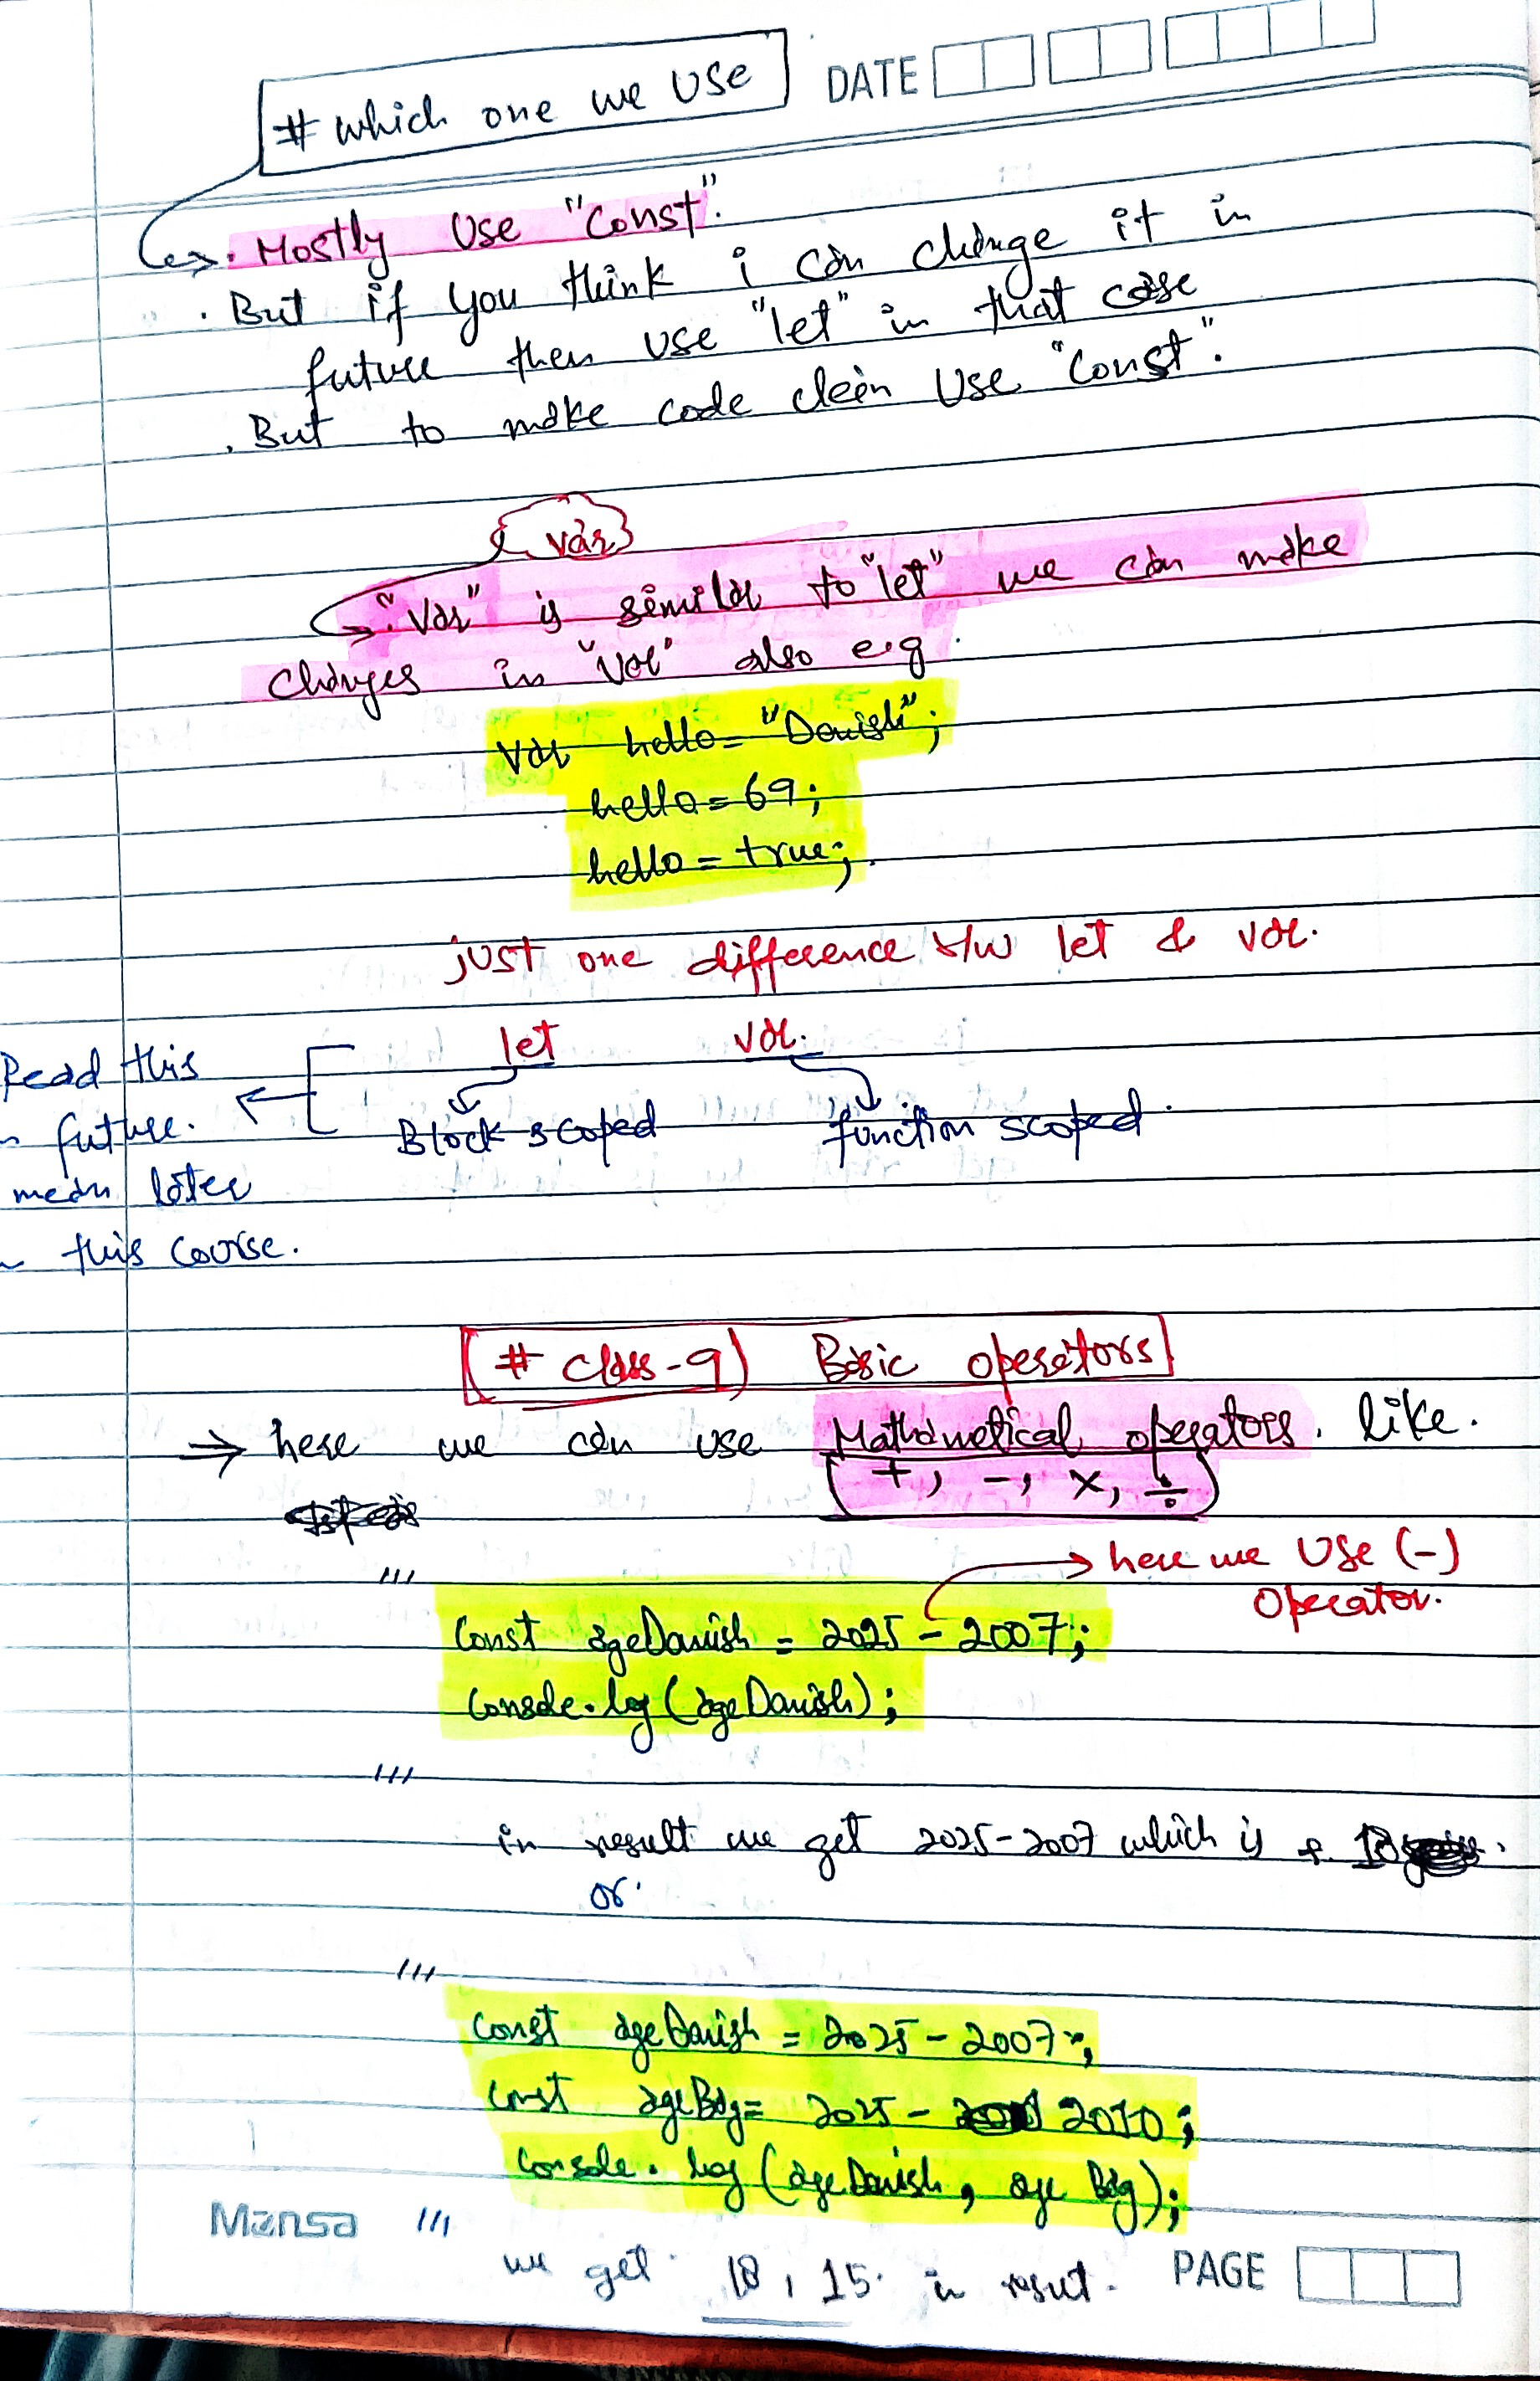 # which one we Use
DATE
. Mostly Use "Const".
. But if you think i can change it in
future then use "let" in that case
. But to make code clean Use "Const".
var
"Var" is similar to "let" we can make
changes in "var" also e.g.
Var hello = "Danish";
hello = 69;
hello = true;
just one difference b/w let & var.
let var.
Block scoped function scoped.
Read this
future.
mean later
this course.
# Class-9) Basic operators
→ here we can use Mathametical operators. like.
(+, -, ×, ÷)
→ here we Use (-)
Operator.
'''
Const ageDanish = 2025 - 2007;
Console.log (ageDanish);
'''
in result we get 2025-2007 which is 18
or.
'''
const ageDanish = 2025 - 2007;
const ageBdg = 2025 - 2010;
Console.log (ageDanish, age Bdg);
'''
we get 18, 15. in resut.
Mansa
PAGE